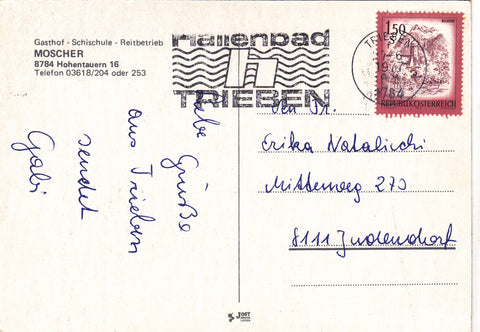 Gasthof - Schischule - Reitbetrieb
MOSCHER
8784 Hohentauern 16
Telefon 03618/204 oder 253
Hallenbad
TRIEBEN
TRIEBEN
8784
1.50
REPUBLIK ÖSTERREICH
Liebe Grüße
aus Trieben
sendet
Gabi
Erika Natalicchi
Mitterweg 270
8111 Judendorf